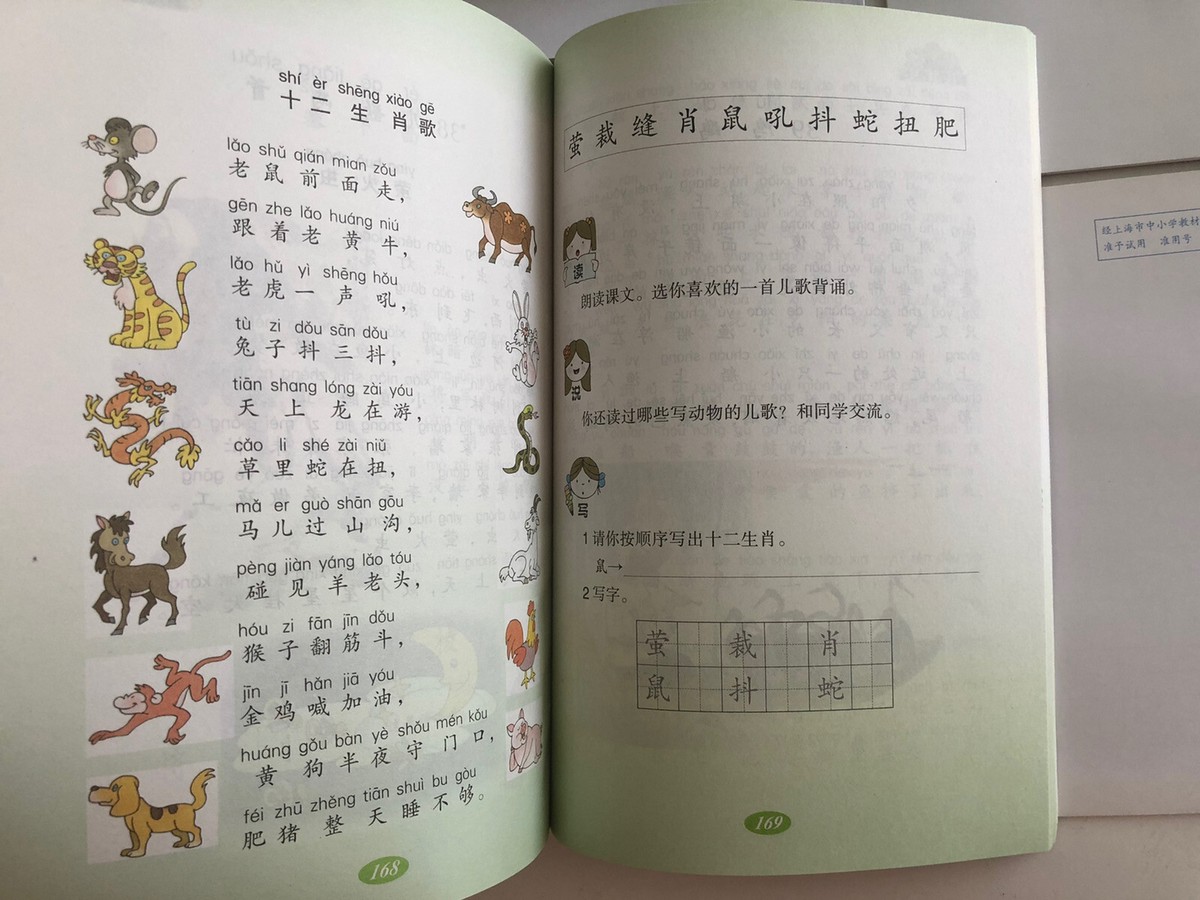 shí èr shēng xiào gē
十二生肖歌
lǎo shǔ qián mian zǒu
老鼠前面走，
gēn zhe lǎo huáng niú
跟着老黄牛，
lǎo hǔ yì shēng hǒu
老虎一声吼，
tù zi dǒu sān dǒu
兔子抖三抖，
tiān shang lóng zài yóu
天上龙在游，
cǎo li shé zài niǔ
草里蛇在扭，
mǎ er guò shān gōu
马儿过山沟，
pèng jiàn yáng lǎo tóu
碰见羊老头，
hóu zi fān jīn dǒu
猴子翻筋斗，
jīn jī hǎn jiā yóu
金鸡喊加油，
huáng gǒu bàn yè shǒu mén kǒu
黄狗半夜守门口，
féi zhū zhěng tiān shuì bu gòu
肥猪整天睡不够。
168
萤裁缝肖鼠吼抖蛇扭肥
读
朗读课文。选你喜欢的一首儿歌背诵。
说
你还读过哪些写动物的儿歌？和同学交流。
写
1 请你按顺序写出十二生肖。
鼠→
2 写字。
萤 裁 肖
鼠 抖 蛇
169
经上海市中小学教材
准予试用 准用号